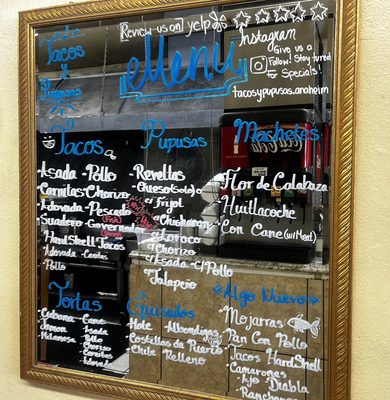 Review us on yelp
Tacos
y
Pupusas
Menu
Instagram
Give us a
Follow! Stay tuned
for Specials!
tacosypupusas.anaheim
Tacos
-Asada -Pollo
-Carnitas -Chorizo
-Adovada -Pescado
(Fish)
-Suadero -Governador
-Hard Shell Tacos
-Adovada -Carnitas
-Pollo
Pupusas
-Reveltas
-Queso(Solo)
c/Frijol
c/Chicharon
c/Loroco
c/Chorizo
c/Asada -c/Pollo
c/Jalapeño
Machetes
-Flor de Calabaza
-Huitlacoche
-Con Carne (w/Meat)
Tortas
-Cubana
-Jamon
-Milanesa
Carne
Asada
Pollo
Chorizo
Carnitas
Adovada
Guisados
-Mole -Albondigas
-Costillas de Puerco
-Chile Relleno
«Algo Nuevo»
-Mojarras
-Pan Con Pollo
-Tacos Hard Shell
-Camarones
-Ajo Diabla
Rancheros
Coca-Cola